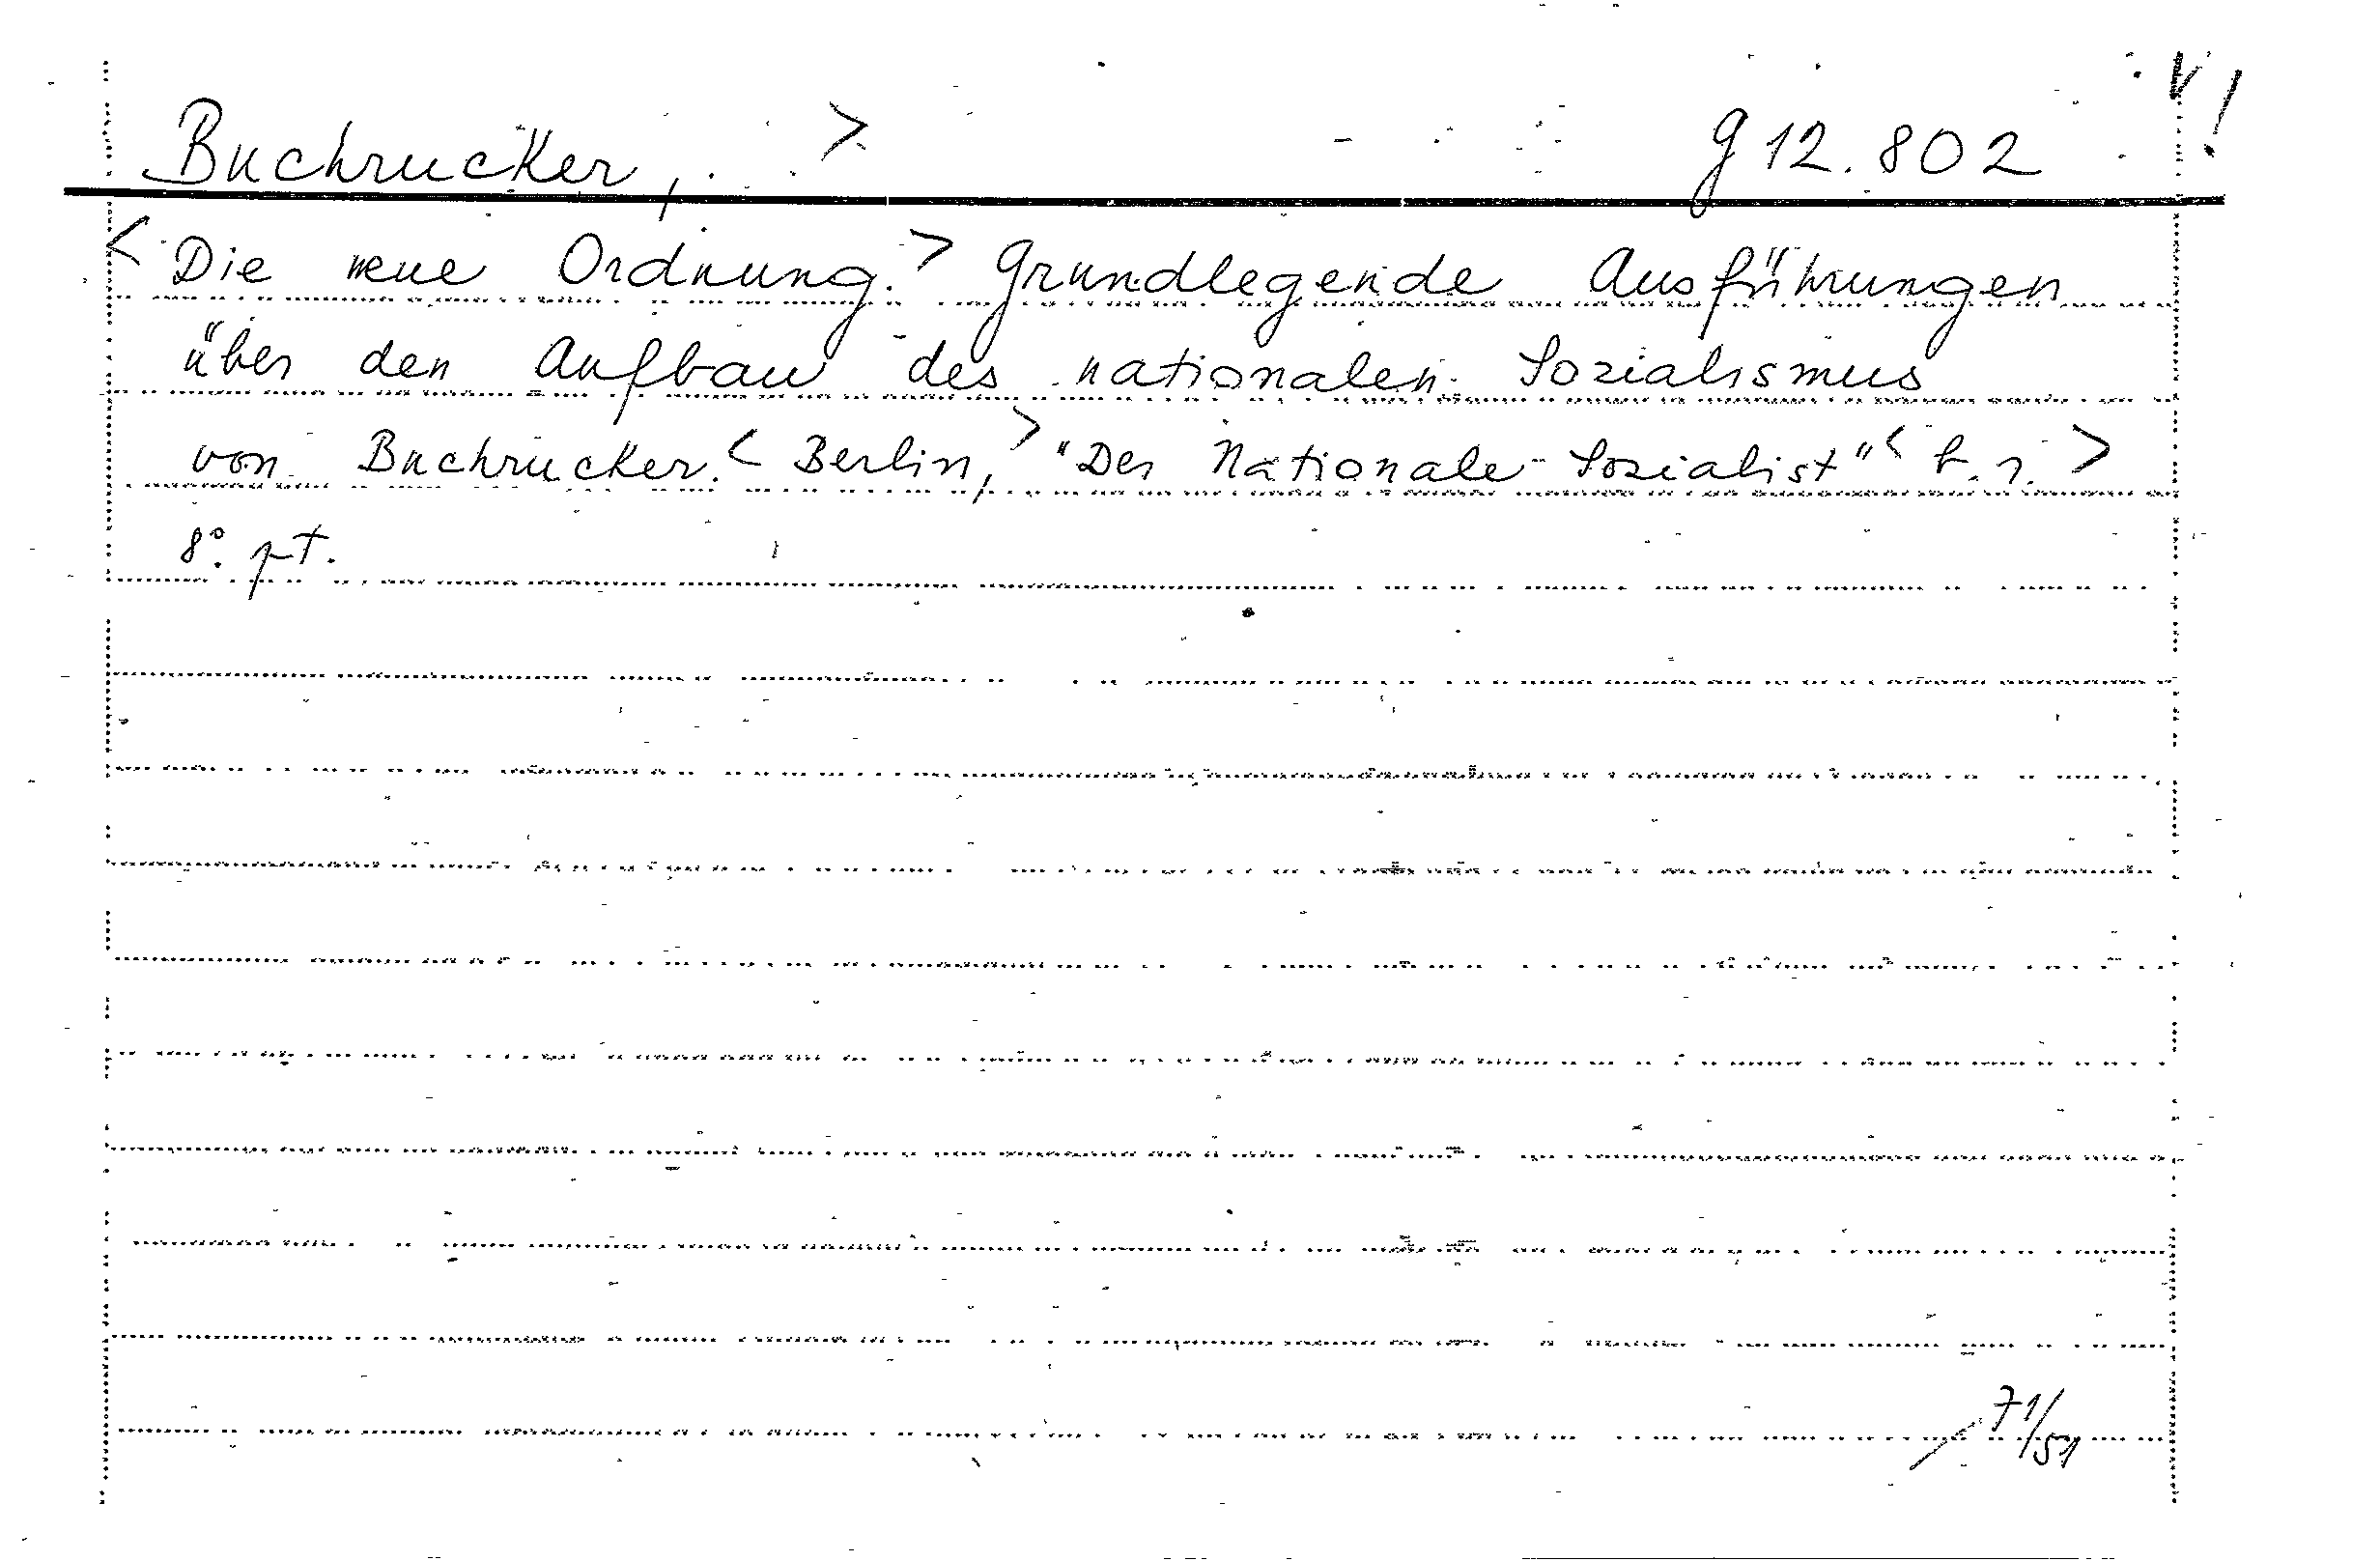 V!
Buchrucker, > g 12.802
< Die neue Ordnung. > Grundlegende Ausführungen
über den Aufbau des nationalen Sozialismus
von Buchrucker. < Berlin, > "Der Nationale Sozialist" < >
8°. pt.
71/51